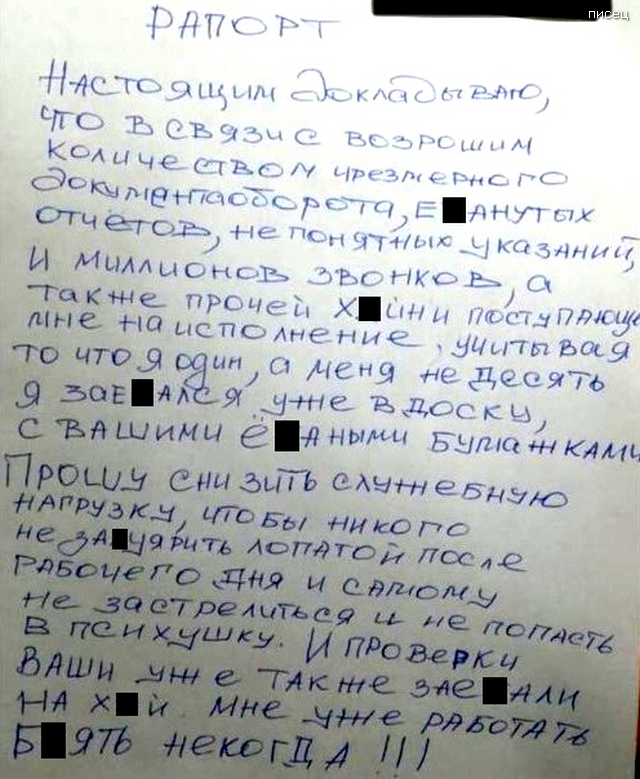 писец
РАПОРТ
Настоящим докладываю,
что в связи с возрошим
количеством чрезмерного
документаоборота, Е█анутых
отчётов, не понятных указаний,
и миллионов звонков, а
также прочей х█йни поступающе
мне на исполнение, учитывая
то что я один, а меня не десять
я зае█ался уже в доску,
с вашими ё█аными бумажками
Прошу снизить служебную
нагрузку, чтобы никого
не за█уярить лопатой после
рабочего дня и самому
не застрелиться и не попасть
в психушку. И проверки
ваши уже также зае█али
на х█й. мне уже работать
б█ять некогда !!!